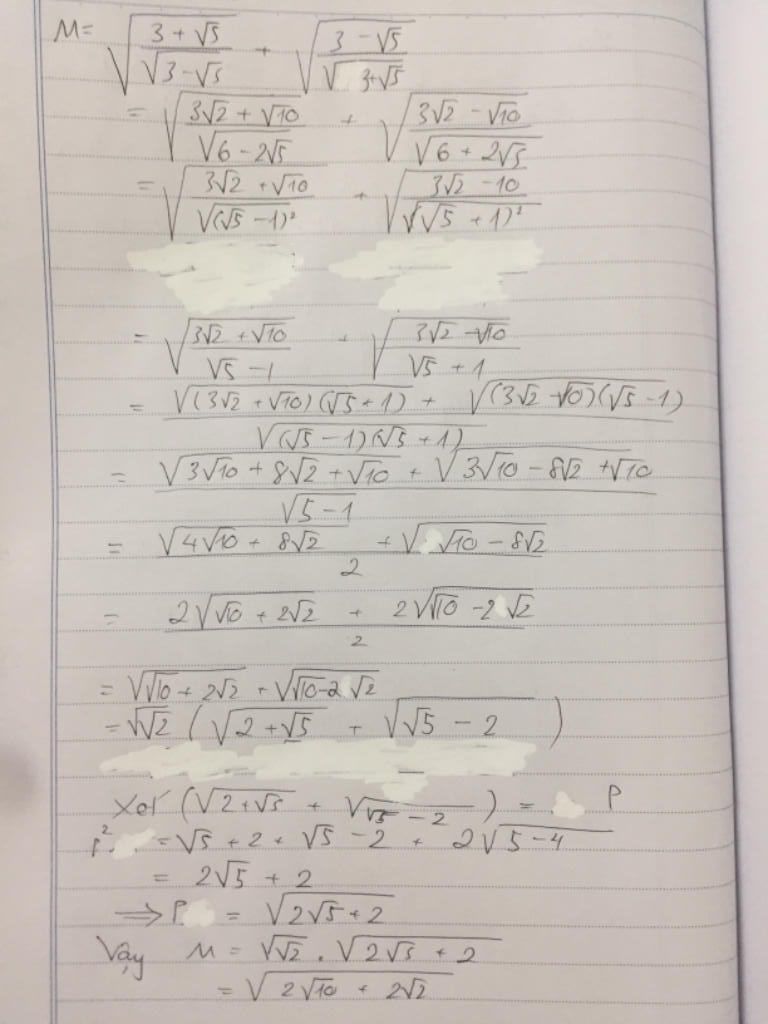 M = √((3 + √5)/√(3 - √5)) + √((3 - √5)/√(3+√5))
= √((3√2 + √10)/√(6 - 2√5)) + √((3√2 - √10)/√(6 + 2√5))
= √((3√2 + √10)/√((√5 - 1)²)) + √((3√2 - 10)/√((√5 + 1)²))
= √((3√2 + √10)/(√5 - 1)) + √((3√2 - √10)/(√5 + 1))
= (√((3√2 + √10)(√5 + 1)) + √((3√2 - √10)(√5 - 1)))/√((√5 - 1)(√5 + 1))
= (√(3√10 + 8√2 + √10) + √(3√10 - 8√2 + √10))/√(5 - 1)
= (√(4√10 + 8√2) + √(√10 - 8√2))/2
= (2√(√10 + 2√2) + 2√(√10 - 2√2))/2
= √(√10 + 2√2) + √(√10 - 2√2)
= √√2 (√(2 + √5) + √(√5 - 2))
Xét (√(2 + √5) + √(√5 - 2)) = P
P² = √5 + 2 + √5 - 2 + 2√(5 - 4)
= 2√5 + 2
⟹ P = √(2√5 + 2)
Vậy M = √√2 . √(2√5 + 2)
= √(2√10 + 2√2)